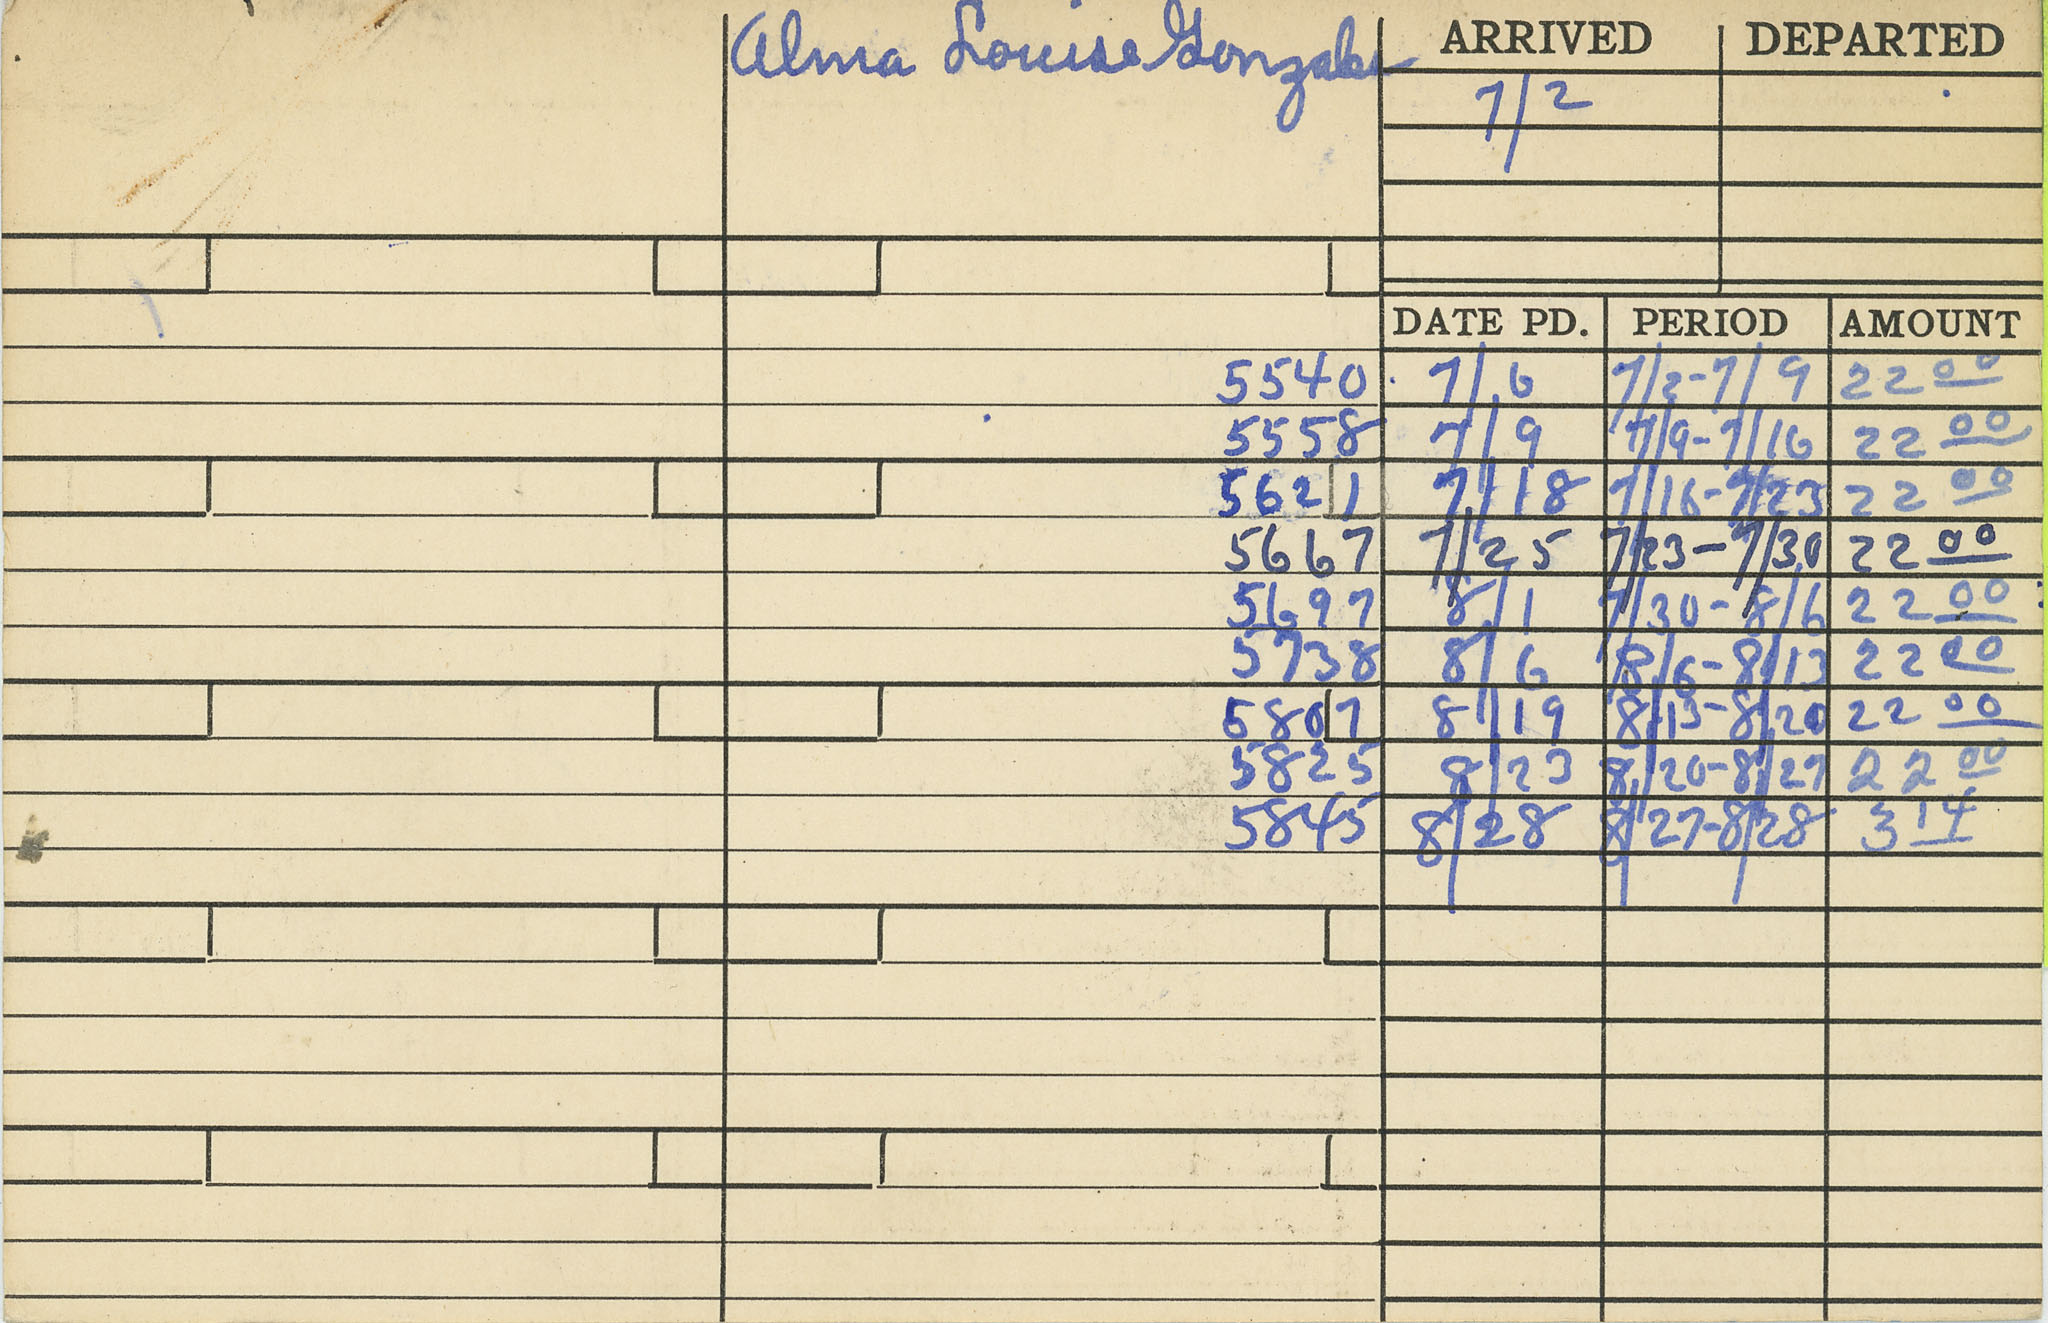 Alma Louise Gonzales
ARRIVED DEPARTED
7/2
DATE PD. PERIOD AMOUNT
5540 7/6 7/2-7/9 22 00
5558 7/9 7/9-7/16 22 00
5621 7/18 7/16-7/23 22 00
5667 7/25 7/23-7/30 22 00
5697 8/1 7/30-8/6 22 00
5738 8/6 8/6-8/13 22 00
5807 8/19 8/13-8/20 22 00
5825 8/23 8/20-8/27 22 00
5845 8/28 8/27-8/28 3 14